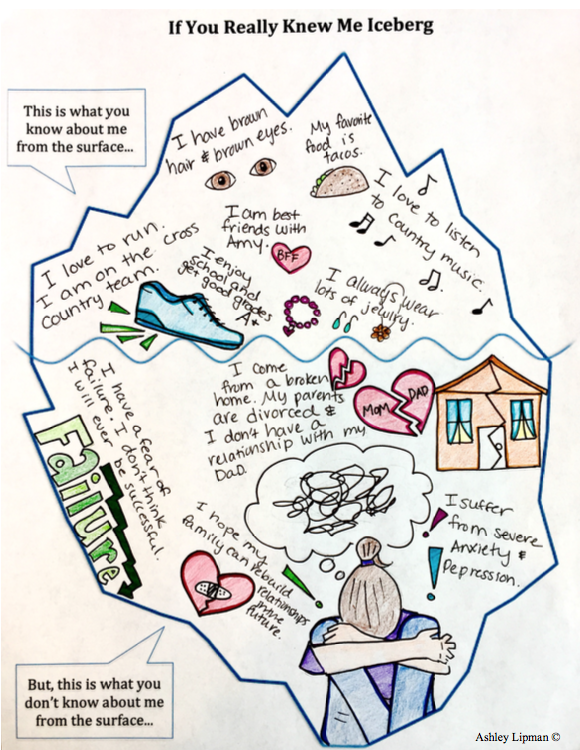 If You Really Knew Me Iceberg
This is what you
know about me
from the surface...
I have brown
hair & brown eyes.
My favorite
food is
tacos.
I love to listen
to country music.
I am best
friends with
Amy.
BFF
I love to run.
I am on the cross
country team.
I enjoy
school and
get good grades
A+
I always wear
lots of jewlry.
I have a fear of
failure. I don't think
I will ever be successful.
Failure
I come
from a broken
home. My parents
are divorced &
I don't have a
relationship with my
Dad.
MOM
DAD
I suffer
from severe
Anxiety &
Depression.
I hope my
family can rebuild
relationships
in the
future.
But, this is what you
don't know about me
from the surface...
Ashley Lipman ©